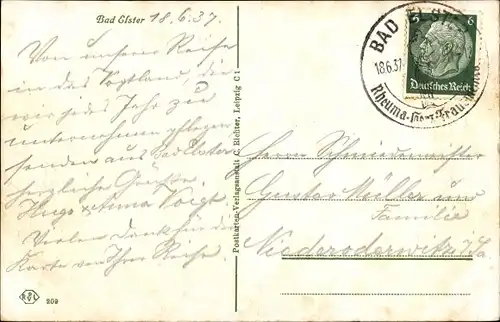 Bad Elster 18.6.37.
Von unserer Reise
in das Vogtland, die
wir jedes Jahr zu
unternehmen pflegen
senden aus Bad Elster
herzliche Grüsse
Hugo & Anna Voigt
Vielen Dank für die
Karte von Ihrer Reise
209
Postkarten-Verlagsanstalt C. Richter, Leipzig C 1
BAD ELSTER
18.6.37
Rheuma-Herz-Frauen
6 6
Deutsches Reich
Herrn Schmiedemeister
Gustav Müller und
Familie
Niederoderwitz i/Sa